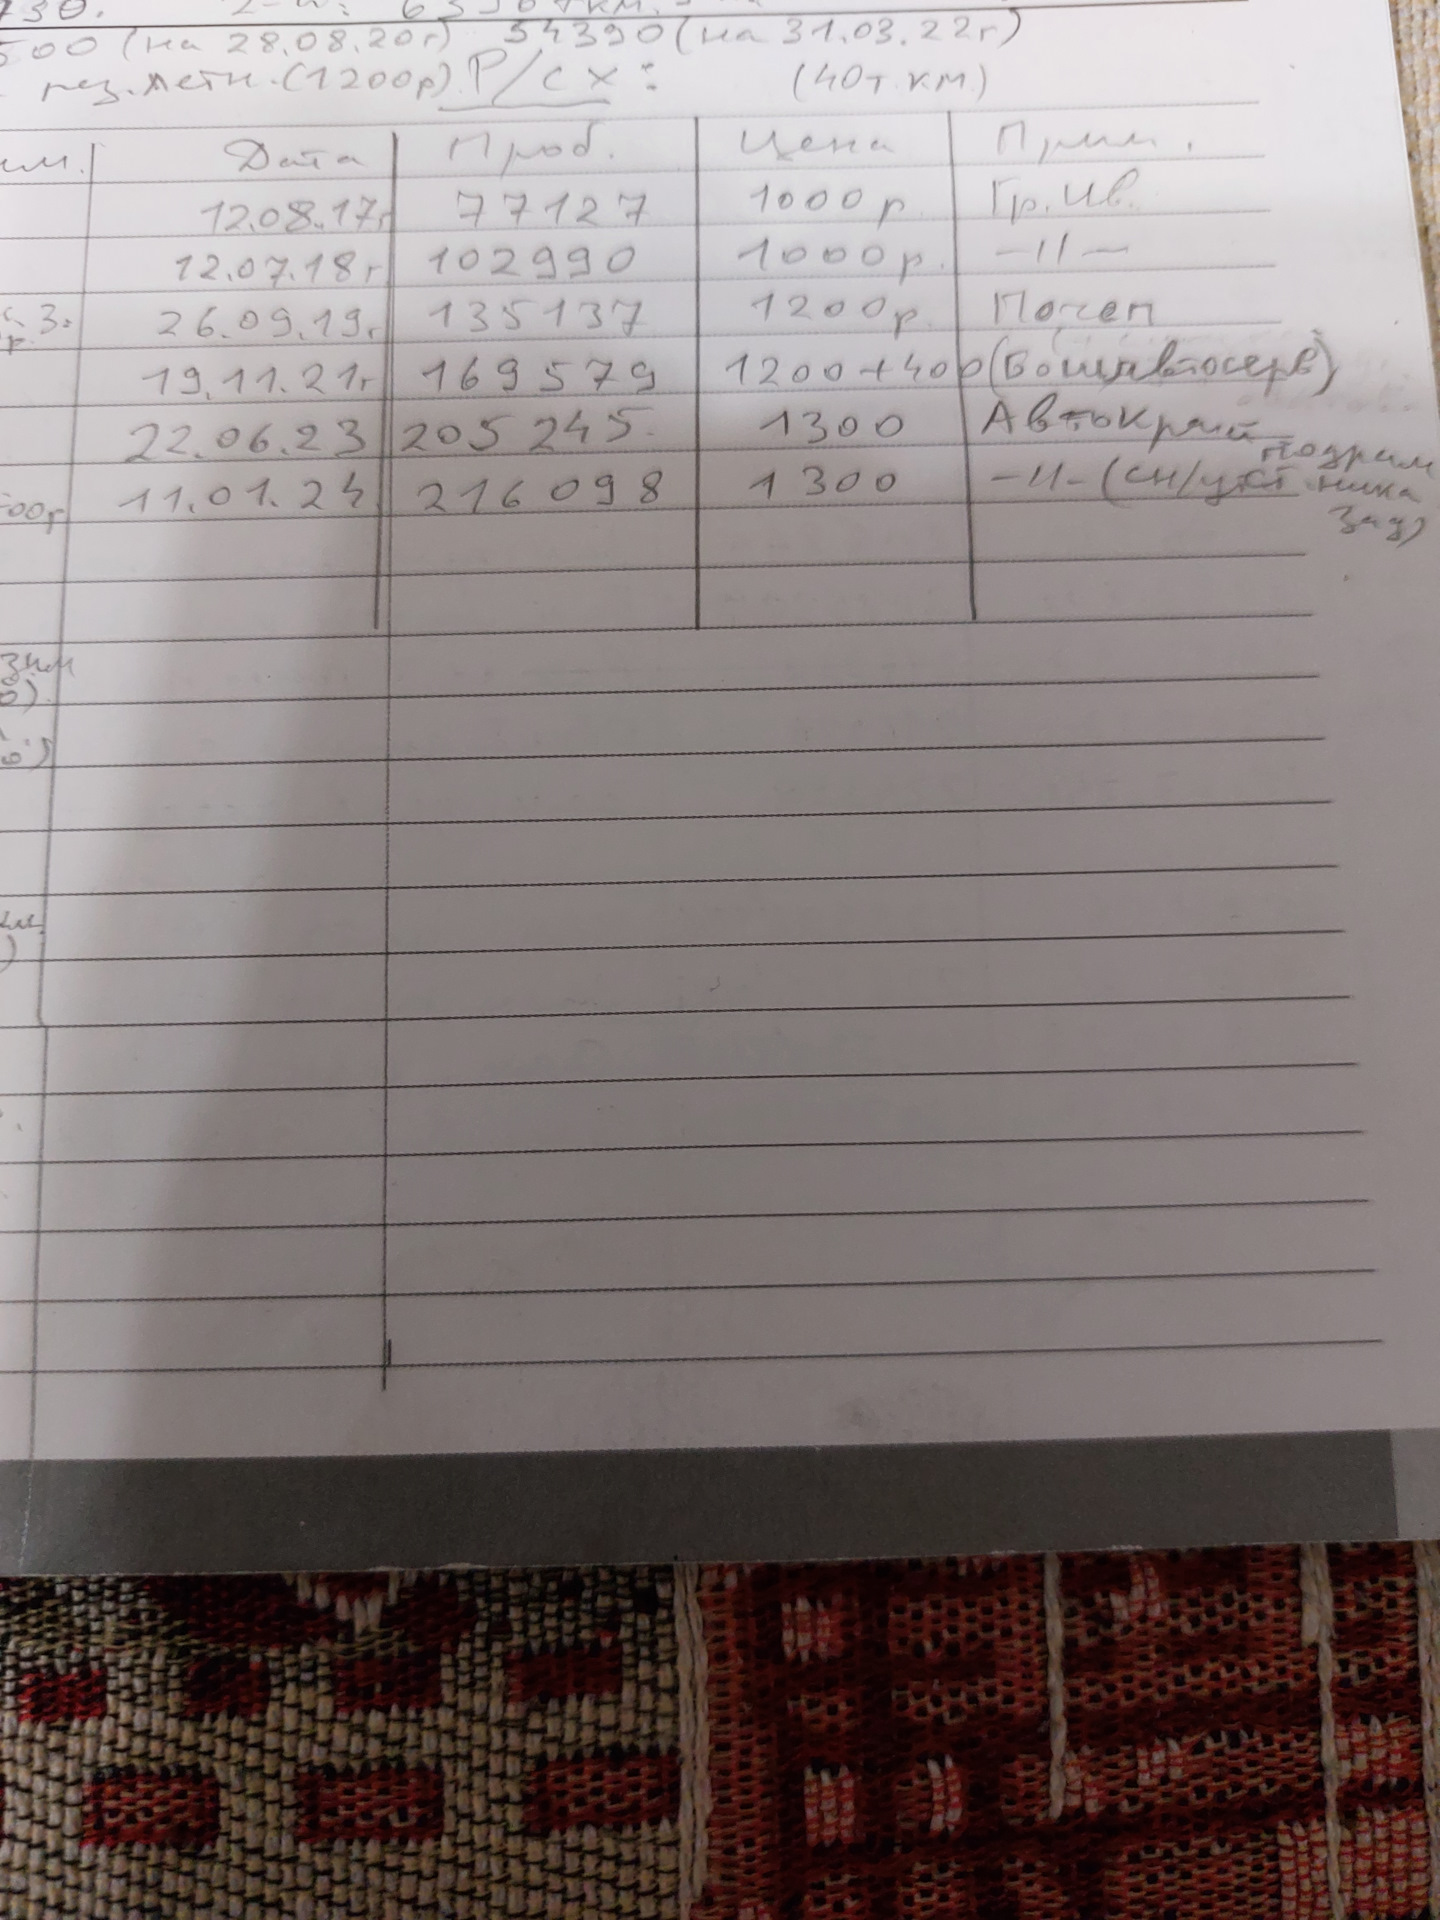 730. 2-й:
500 (на 28.08.20г) 54390 (на 31.03.22г)
рез.летн. (1200р) Р/сх: (40т.км)
им. Дата Проб. Цена Прим.
12.08.17г 77127 1000р Гр.Ив.
12.07.18г 102990 1000р. -||-
3: 26.09.19г 135137 1200р. Почеп
р. 19.11.21г 169579 1200+400
22.06.23 205245. 1300 Автокрай
500р 11.01.24 216098 1300 -||- (сн/уст подрам
ника
зад)
зим
0).